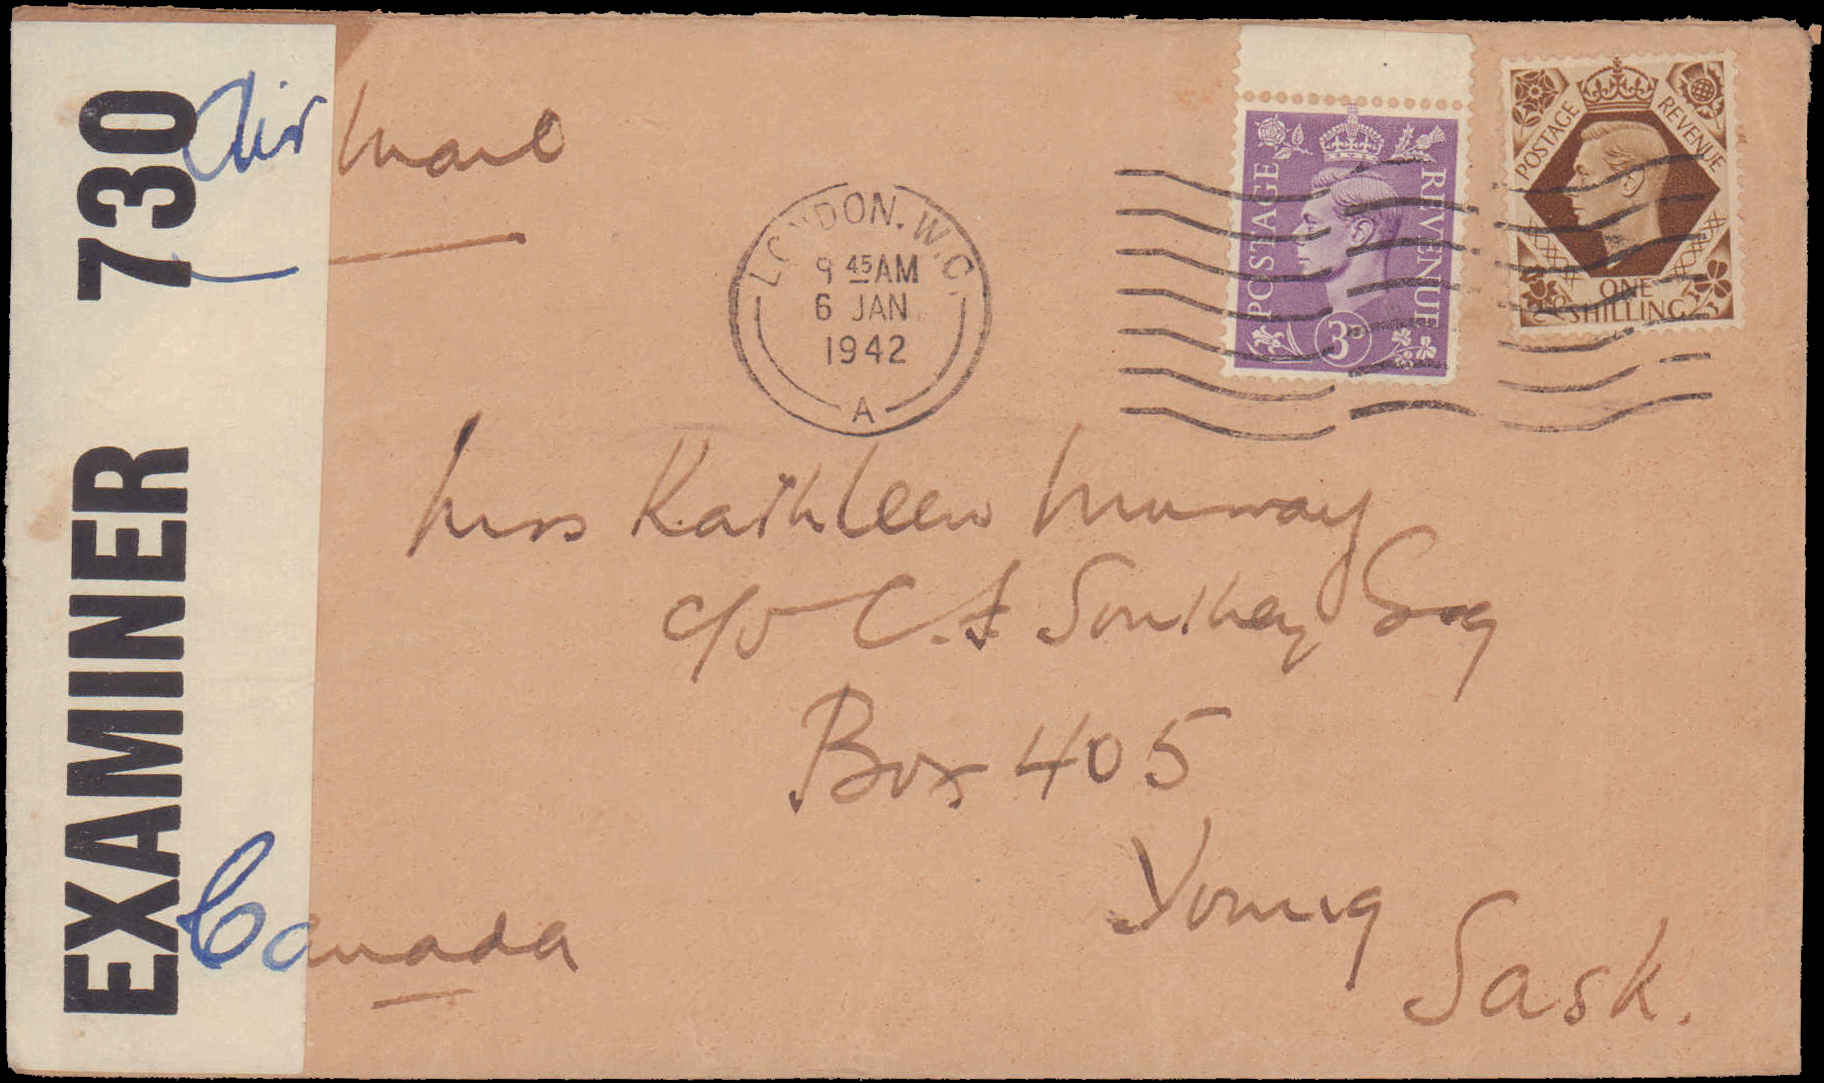 EXAMINER 730
Air Mail
LONDON. W.C.
9 45AM
6 JAN
1942
A
POSTAGE REVENUE
3D
POSTAGE REVENUE
ONE
SHILLING
Miss Kathleen Murray
c/o C.S Southey Esq
Box 405
Young
Sask.
Canada